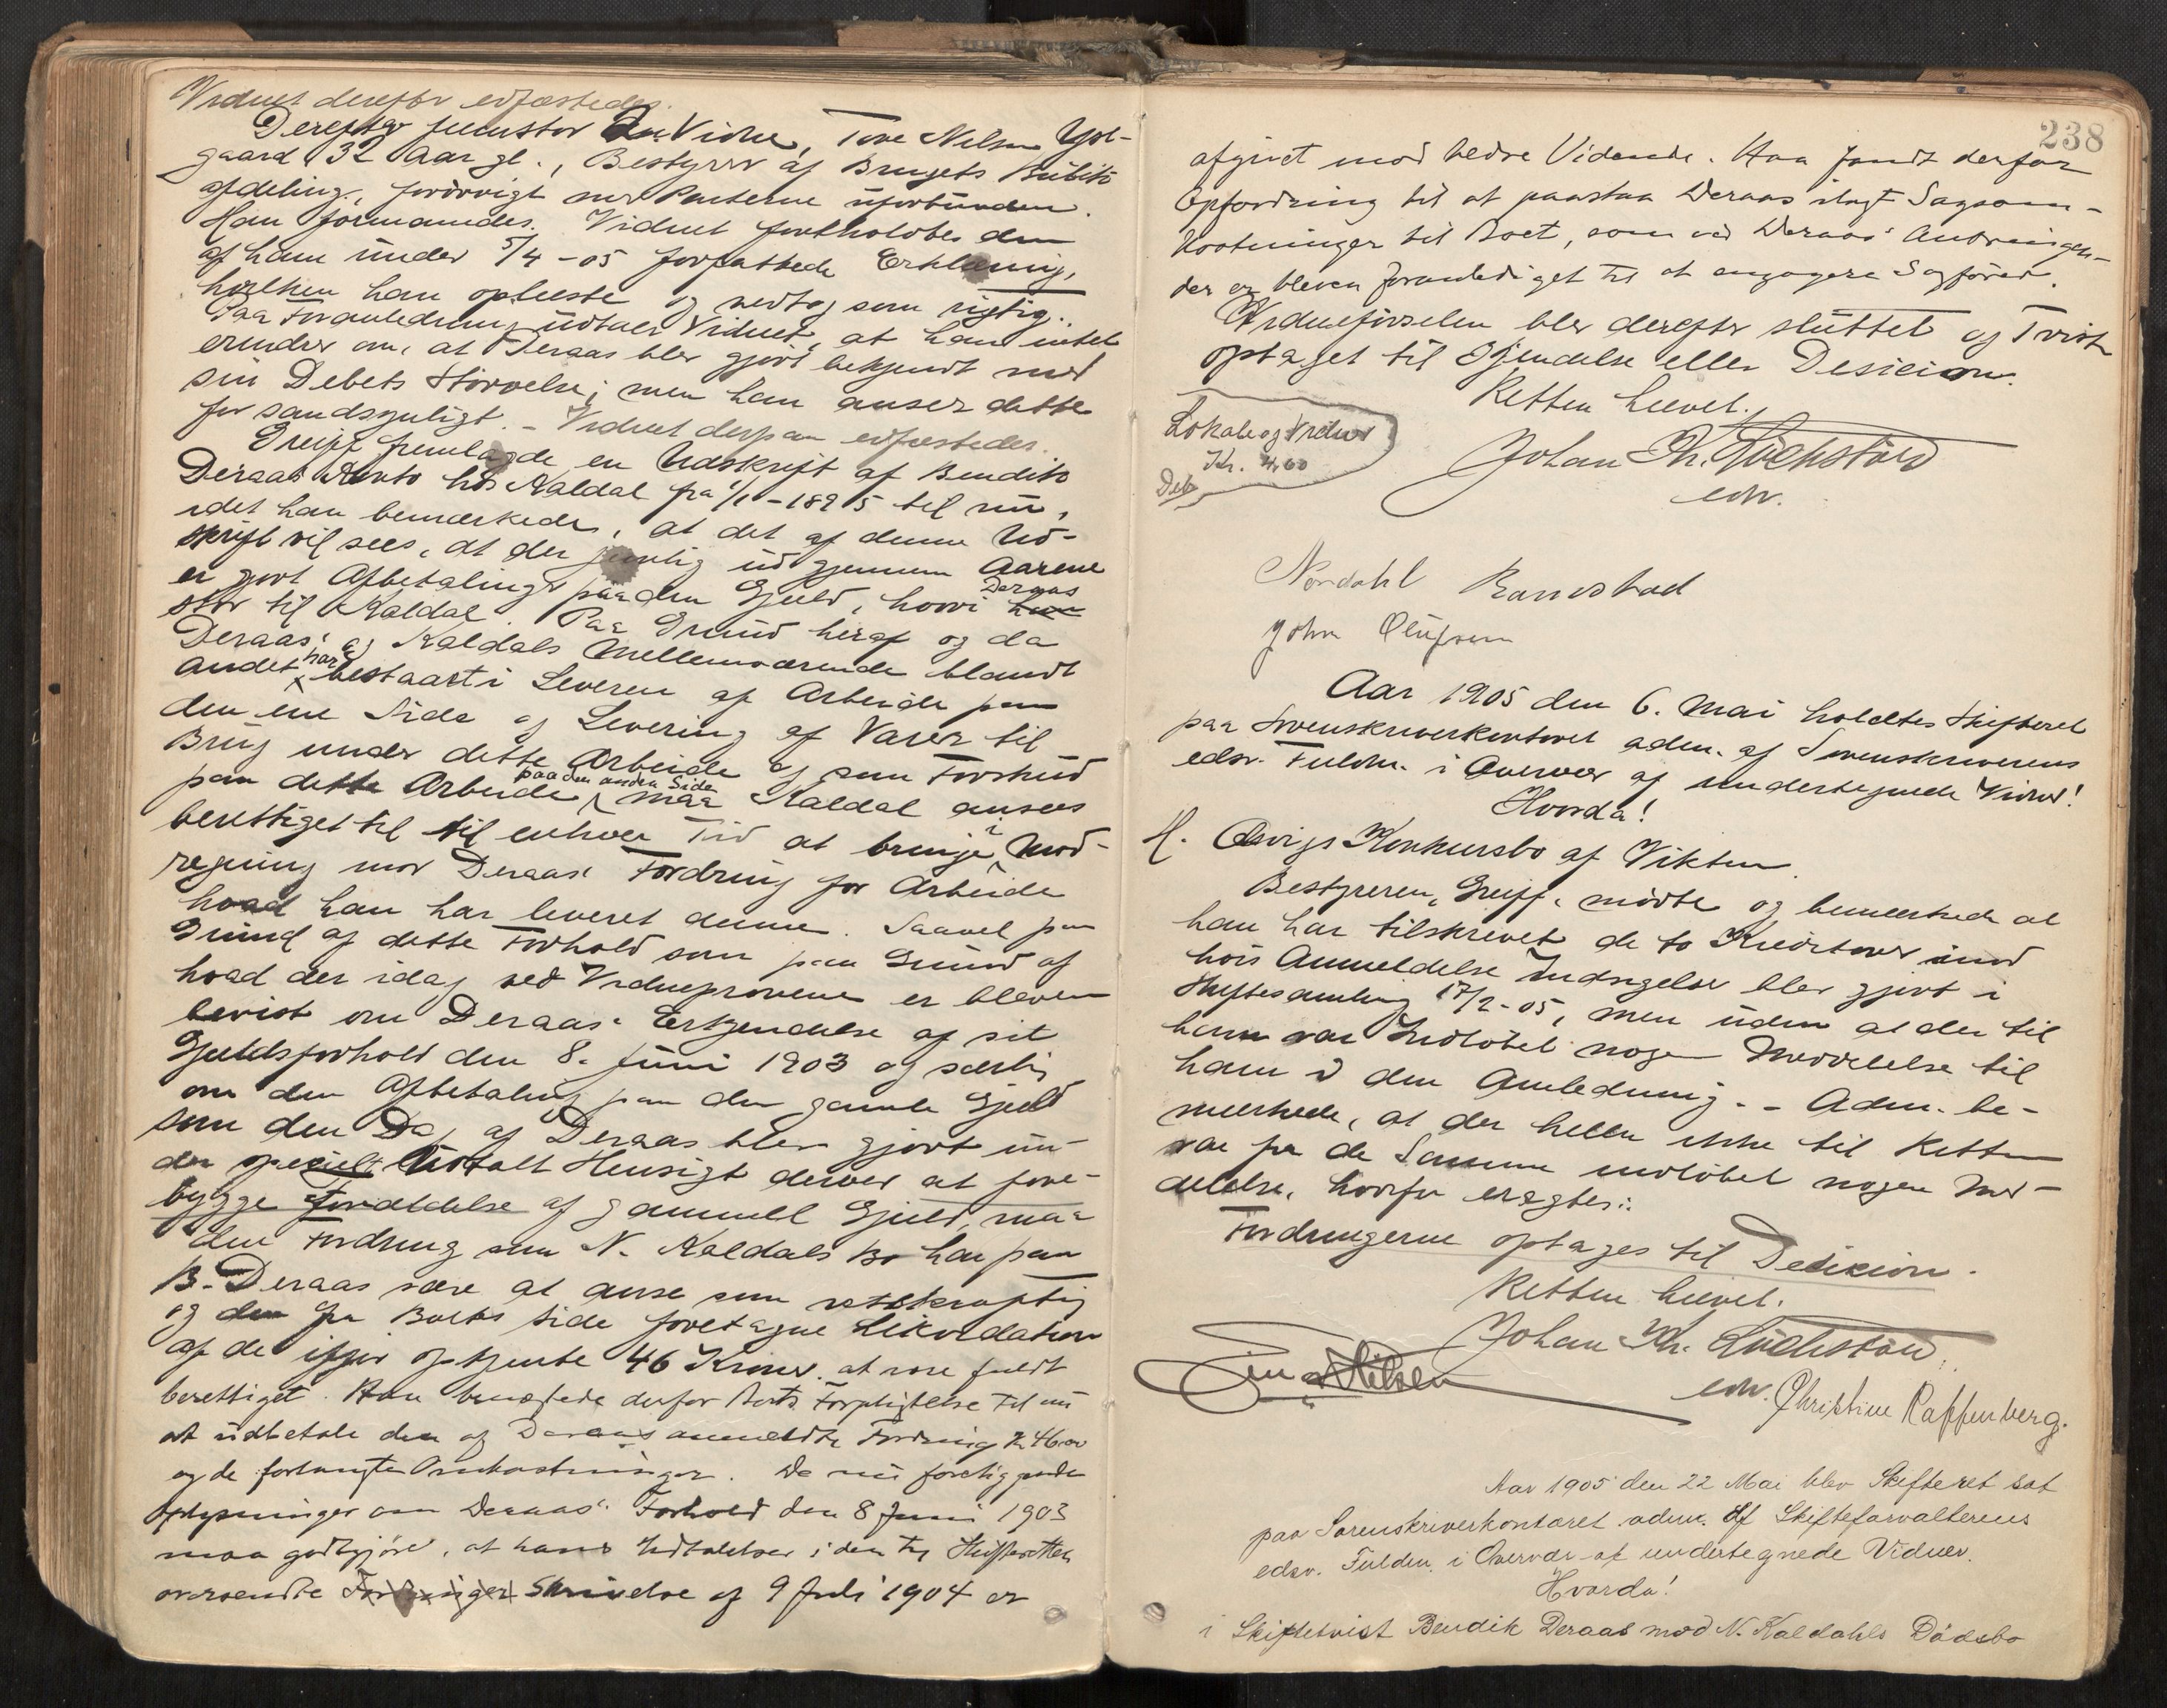 Vidnet derefter edfæstedes.
Derefter fremstod 2det Vidne, Tore Nilsen
gaard 32 Aar gl., Bestyrer af Brugets Butik
afdeling, forøvrigt med Parterne uforbunden.
Han formanedes. Vidnet foreholdtes den
af ham under 5/4-05 forfattede Erklæring,
hvilken han oplæste og vedtog som rigtig.
Paa Foranledning udtaler Vidnet, at han intet
erindrer om, at Deraas blev gjort bekjendt med
sin Debets Størrelse; men han anser dette
for sandsynligt. - Vidnet derpaa edfæstedes.
Greipp fremlagde en Udskrift af Bendik
Deraas Konto hos Kaldal fra 1/1-1895 til nu,
idet han bemærkede, at det af denne Ud-
skrift vil sees, at der jevnlig ud gjennem Aarene
er gjort Afbetalinger paa den Gjeld, hvori Deraas
stod til Kaldal. Paa Grund heraf og da
Deraas' og Kaldals Mellemværende blandt
andet har bestaaet i Leveren af Arbeide paa
den ene Side og Levering af Varer til
Brug under dette Arbeide og som Forskud
paa dette Arbeide paa den anden Side maa Kaldal ansees
berettiget til til enhver Tid at bringe i Mod-
regning mod Deraas' Fordring for Arbeide
hvad han har leveret denne. Saavel paa
Grund af dette Forhold som paa Grund af
hvad der idag ved Vidneprovene er bleven
bevist om Deraas' Erkjendelse af sit
Gjeldsforhold den 8. Juni 1903 og særlig
om den Afbetaling paa den gamle Gjeld
som den Dag af Deraas blev gjort un-
der specielt Udtalt Hensigt derved at fore-
bygge Forældelse af gammel Gjeld, maa
den Fordring som N. Kaldals Bo har paa
B. Deraas være at anse som retskraftig
og den fra Boets Side foretagne Likvidation
af de ifjor optjente 46 Kroner at være fuldt
berettiget. Han benægtede derfor Boets Forpligtelse til nu
at udbetale den af Deraas anmeldte Fordring Kr 46.00
og de forlangte Omkostninger. De nu foreliggende
Oplysninger om Deraas' Forhold den 8 Juni 1903
maa godtgjøre, at hans Udtalelser i den til Skifteretten
oversendte Skrivelse af 9 Juli 1904 er
238
afgivet mod bedre Vidende. Han fandt derfor
Opfordring til at paastaa Deraas ilagt Sagsom-
kostninger til Boet, som ved Deraas' Anbringen-
der er bleven foranlediget til at engagere Sagfører.
Vidneførselen blev derefter sluttet og Tvisten
optaget til Kjendelse eller Desicion.
Retten hævet.
Lokale og Vidner
Kr. 4.60
Deb
Johan Kr. Lüchstöd
edv.
Nordahl Ramstad
John Olufsen
Aar 1905 den 6. Mai holdtes Skifteret
paa Sorenskriverkontoret adm. af Sorenskriverens
edsv. Fuldm. i Overvær af undertegnede Vidner!
Hvorda!
H. Ansvigs Konkursbo af Vikten
Bestyreren, Greipp, mødte og bemærkede at
han har tilskrevet de to Kreditorer mod
hvis Anmeldelse Indsigelse blev gjort i
Skiftesamling 17/2-05, men uden at der til
ham var Indløbet nogen Meddelelse til
ham i den Anledning. - Adm. be-
mærkede, at der heller ikke til Retten
var fra de Samme indløbet nogen Med-
delelse, hvorfor eragtes:
Fordringerne optages til Desicion.
Retten hævet.
Johan Kr. Lüchstöd
edv.
Christine Raffenberg.
Aar 1905 den 22 Mai blev Skifteret sat
paa Sorenskriverkontoret adm. af Skifteforvalterens
edsv. Fuldm. i Overvær af undertegnede Vidner.
Hvorda!
i Skiftetvist Bendik Deraas mod N. Kaldahls Dødsbo